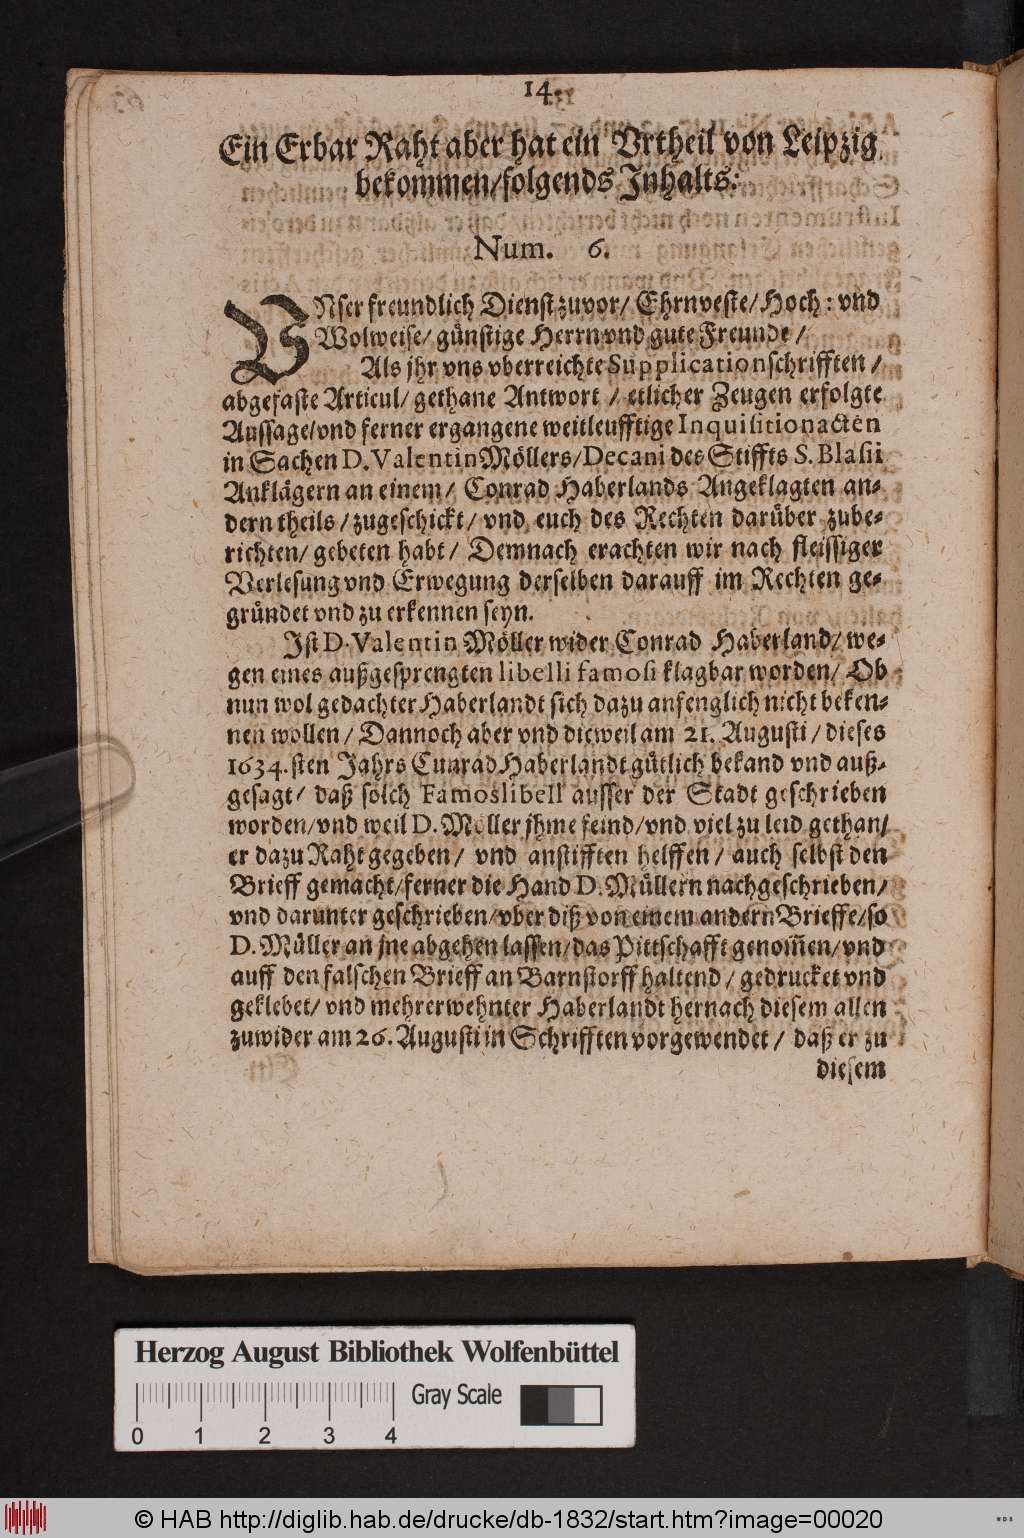 14.
Ein Erbar Raht aber hat ein Vrtheil von Leipzig
bekommen/folgends Jnhalts:
Num. 6.
VNser freundlich Dienst zuvor/ Ehrnveste/ Hoch: vnd
Wolweise/ günstige Herrn vnd gute Freunde /
Als jhr vns vberreichte Supplicationschrifften /
abgefaste Articul/ gethane Antwort / etlicher Zeugen erfolgte
Aussage/vnd ferner ergangene weitleufftige Inquisitionacten
in Sachen D. Valentin Möllers/ Decani des Stiffts S. Blasii
Anklägern an einem/ Conrad Haberlands Angeklagten an-
dern theils / zugeschickt/ vnd euch des Rechten darüber zube-
richten/ gebeten habt/ Demnach erachten wir nach fleissiger
Verlesung vnd Erwegung derselben darauff im Rechten ge-
gründet vnd zu erkennen seyn.
Jst D. Valentin Möller wider Conrad Haberland/ we-
gen eines außgesprengten libelli famosi klagbar worden/ Ob
nun wol gedachter Haberlandt sich dazu anfenglich nicht beken-
nen wollen/ Dannoch aber vnd dieweil am 21. Augusti / dieses
1634.sten Jahrs Cunrad Haberlandt gütlich bekand vnd auß-
gesagt/ daß solch Famoslibell ausser der Stadt geschrieben
worden/vnd weil D. Möller jhme feind/vnd viel zu leid gethan/
er dazu Raht gegeben/ vnd anstifften helffen / auch selbst den
Brieff gemacht/ferner die Hand D. Müllern nachgeschrieben/
vnd darunter geschrieben/vber diß von einem andern Brieffe/so
D. Müller an jne abgehen lassen/das Pittschafft genom̃en/vnd
auff den falschen Brieff an Barnstorff haltend / gedrucket vnd
geklebet/ vnd mehrerwehnter Haberlandt hernach diesem allen
zuwider am 26. Augusti in Schrifften vorgewendet / daß er zu
diesem
Herzog August Bibliothek Wolfenbüttel
Gray Scale
0 1 2 3 4
© HAB http://diglib.hab.de/drucke/db-1832/start.htm?image=00020